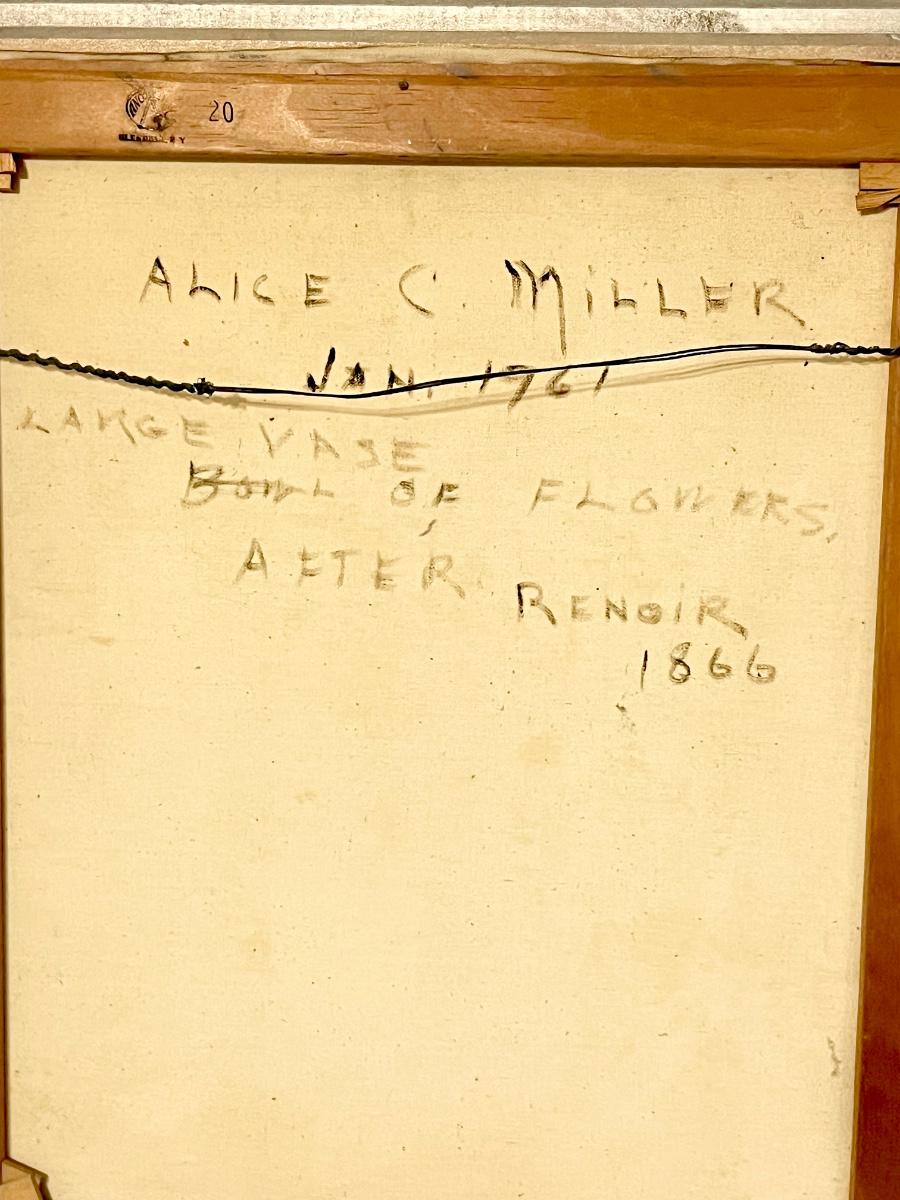 20
ALICE C. MILLER
JAN. 1961
LARGE VASE
BOWL OF FLOWERS,
AFTER RENOIR
1866